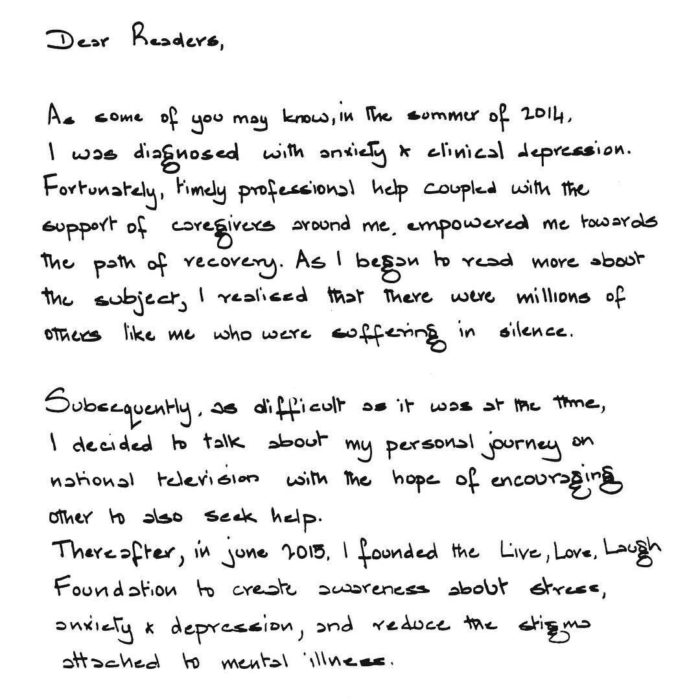 Dear Readers,
As some of you may know, in the summer of 2014,
I was diagnosed with anxiety & clinical depression.
Fortunately, timely professional help coupled with the
support of caregivers around me, empowered me towards
the path of recovery. As I began to read more about
the subject, I realised that there were millions of
others like me who were suffering in silence.
Subsequently, as difficult as it was at the time,
I decided to talk about my personal journey on
national television with the hope of encouraging
other to also seek help.
Thereafter, in june 2015, I founded the Live, Love, Laugh
Foundation to create awareness about stress,
anxiety & depression, and reduce the stigma
attached to mental illness.